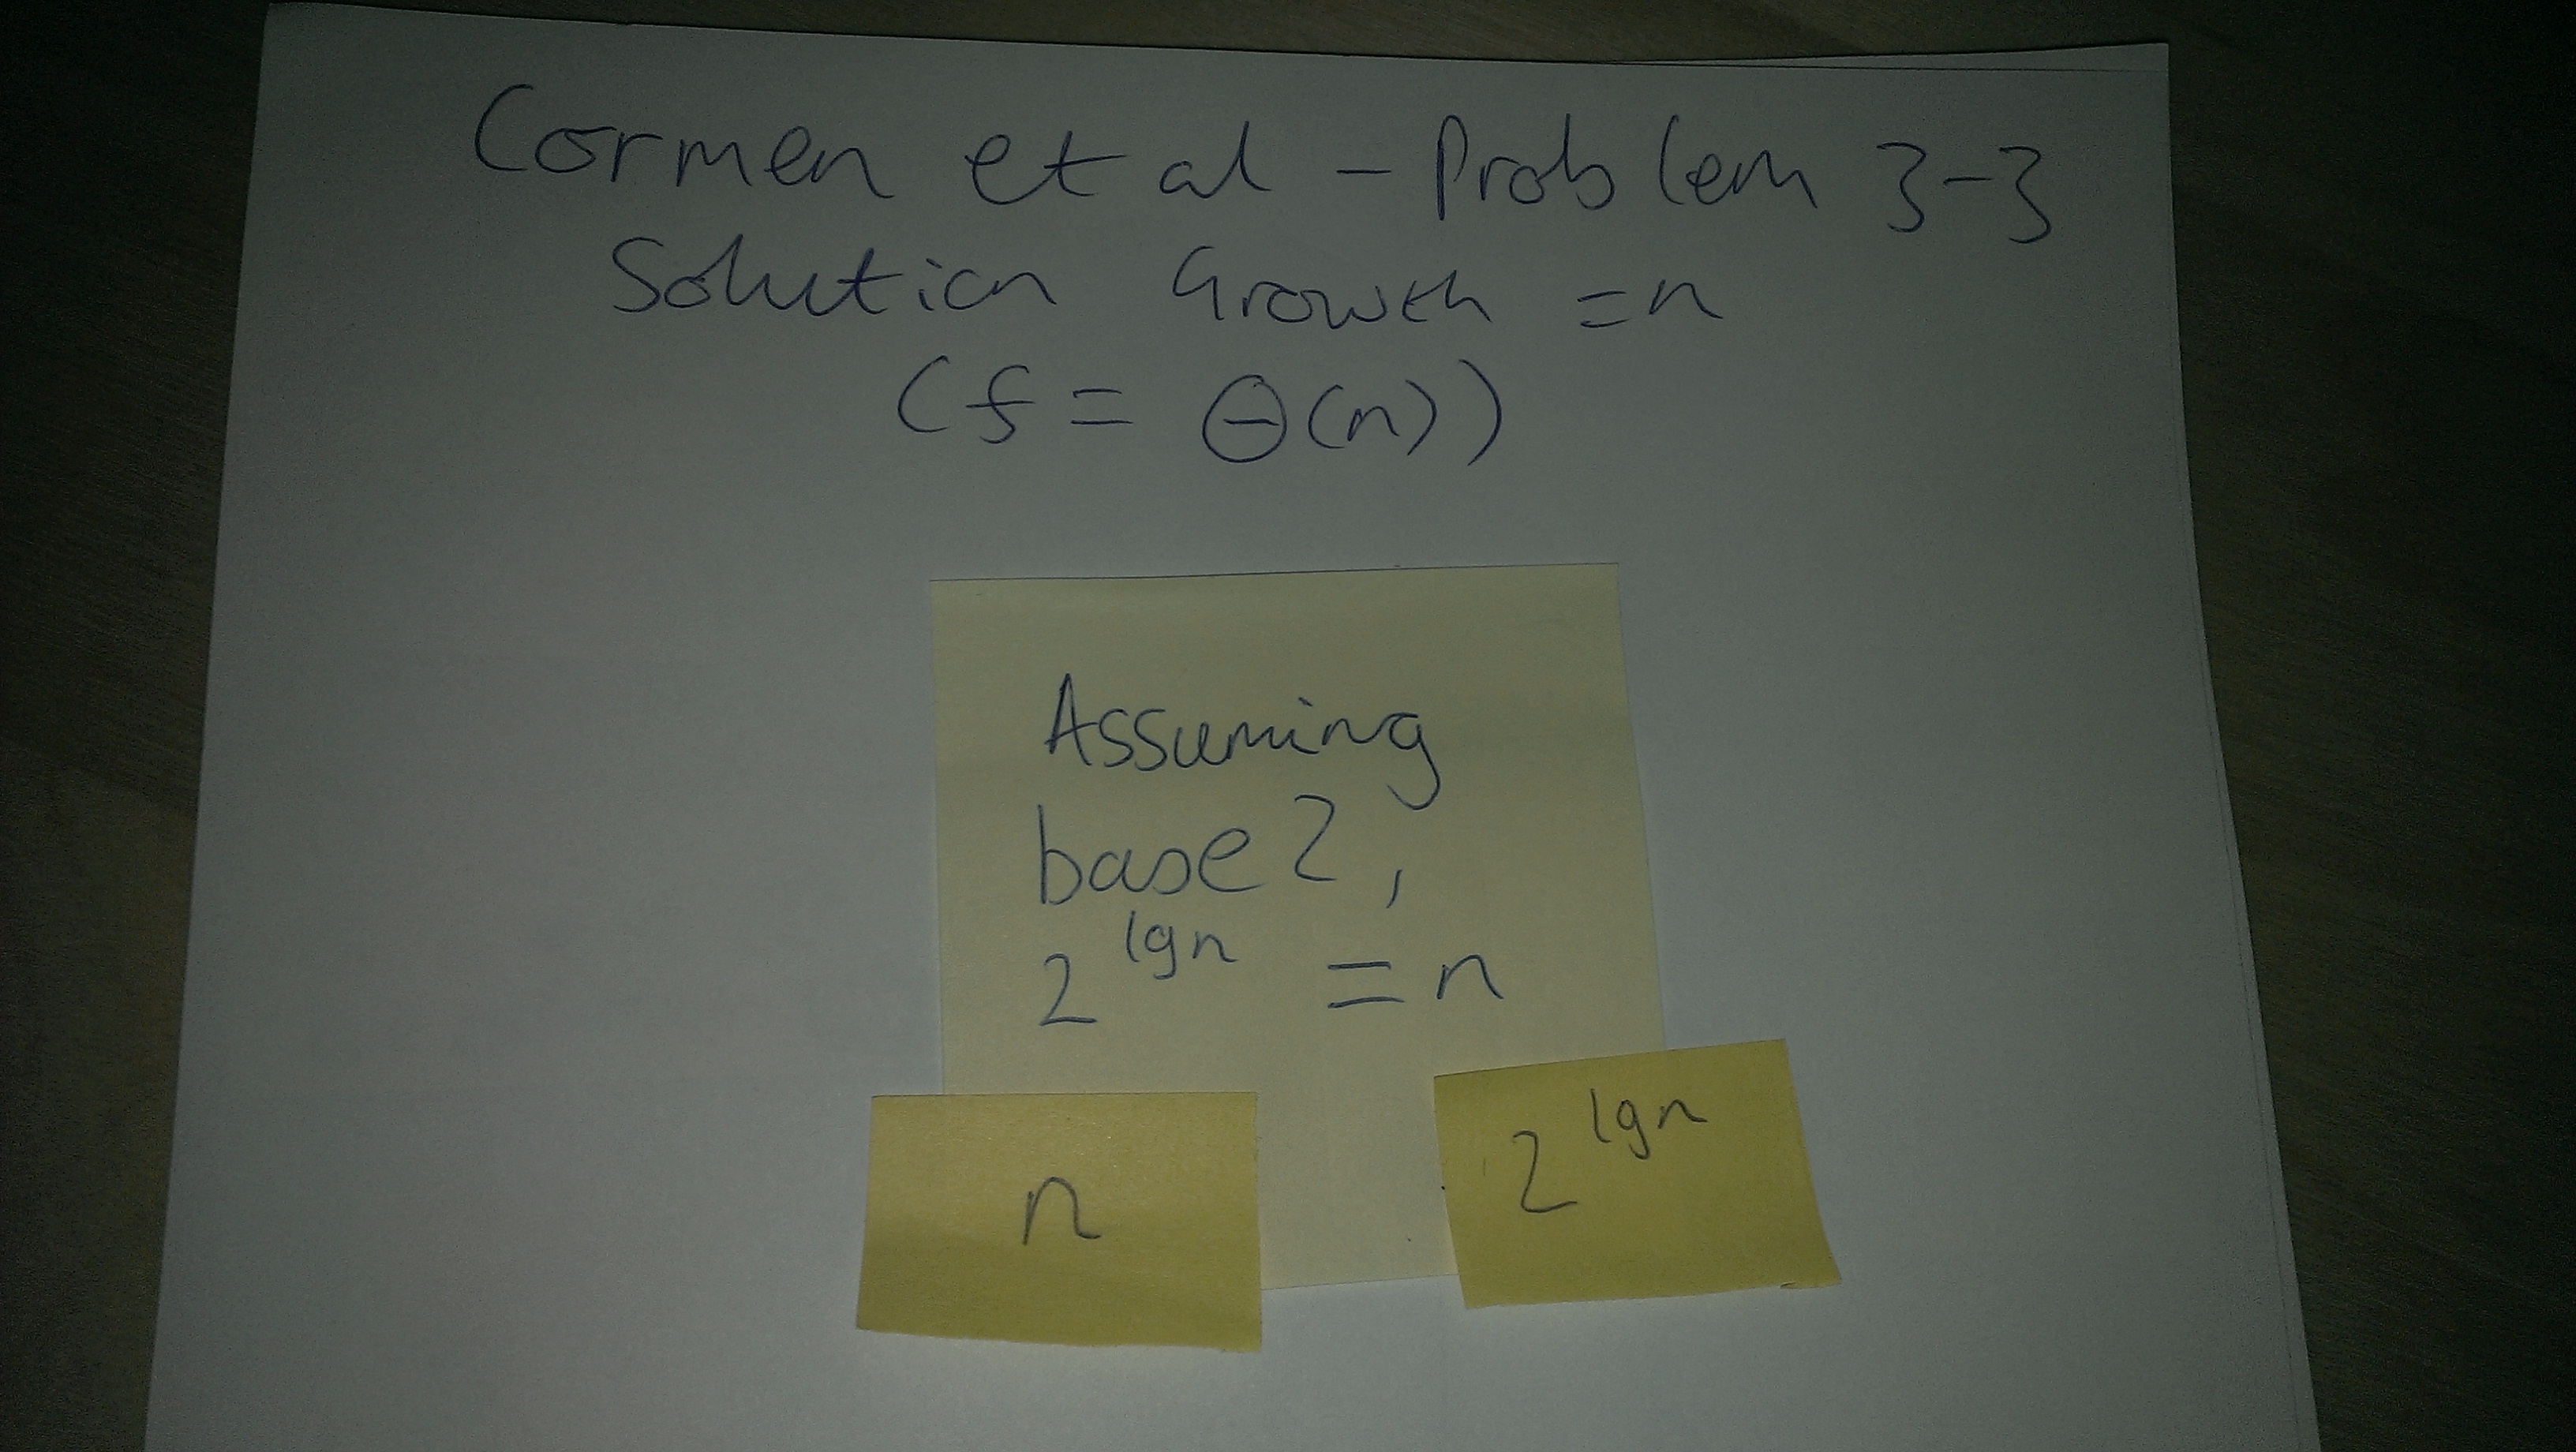 Cormen et al - Problem 3-3
Solution Growth = n
(f = Θ(n))
Assuming
base 2,
2^lgn = n
n
2^lgn